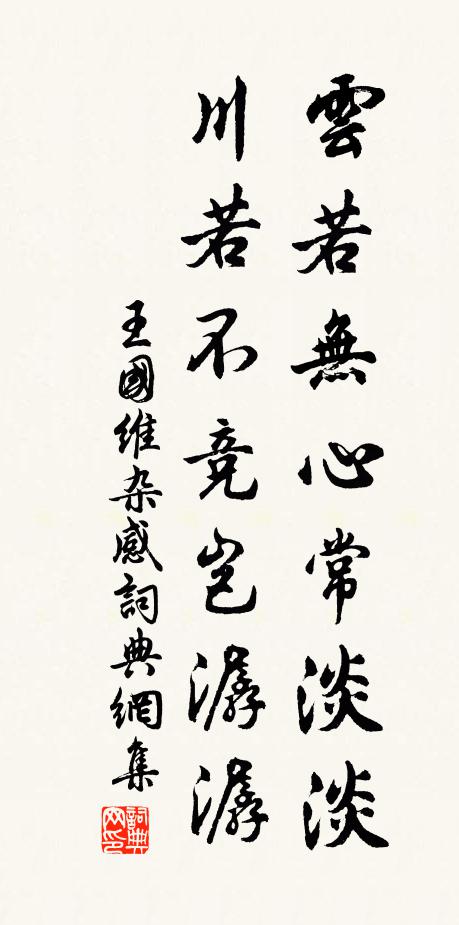 雲若無心常淡淡
川若不竞岂潺潺
王國維杂感詞典網集
詞典网印